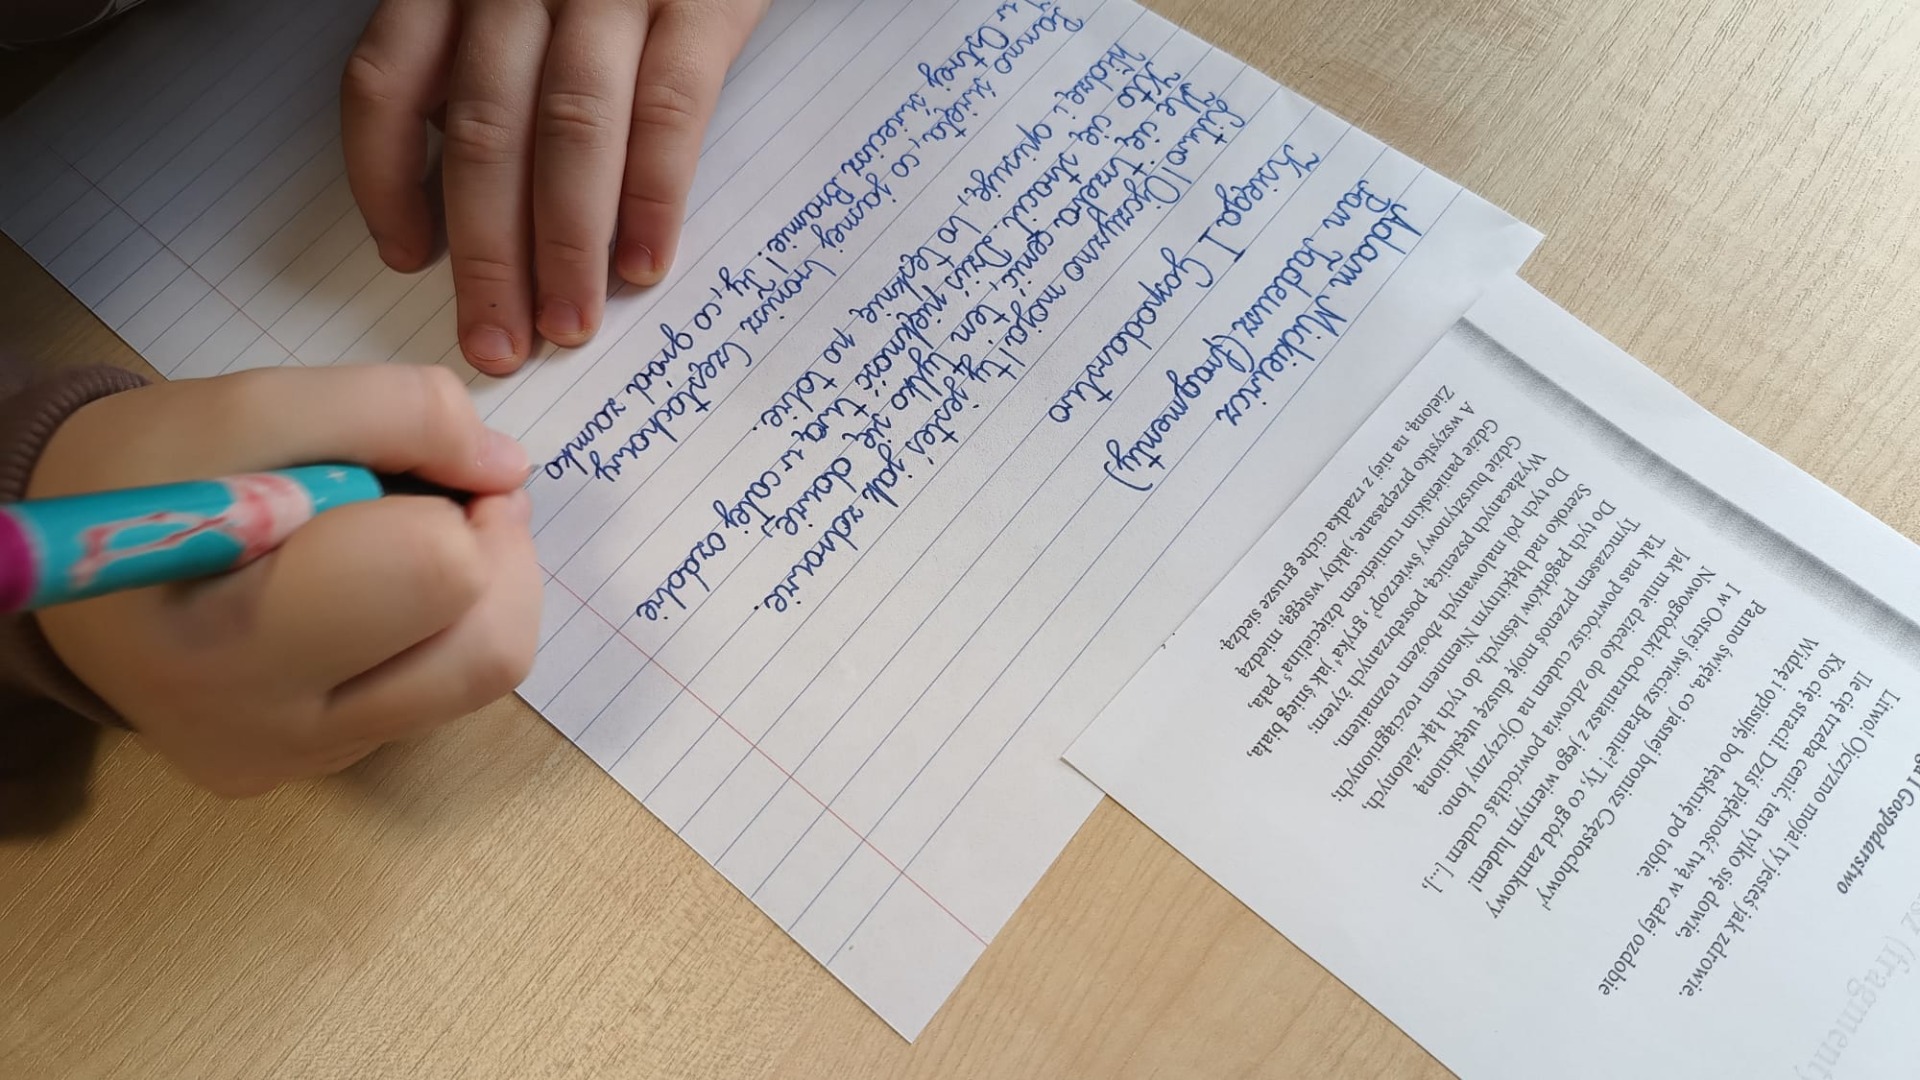 Adam Mickiewicz
Pan Tadeusz (fragmenty)
Księga I Gospodarstwo
Litwo! Ojczyzno moja! ty jesteś jak zdrowie.
Ile cię trzeba cenić, ten tylko się dowie,
Kto cię stracił. Dziś piękność twą w całej ozdobie
Widzę i opisuję, bo tęsknię po tobie.
Panno święta, co jasnej bronisz Częstochowy
I w Ostrej świecisz Bramie! Ty, co gród zamko
(fragmenty
I Gospodarstwo
Litwo! Ojczyzno moja! ty jesteś jak zdrowie.
Ile cię trzeba cenić, ten tylko się dowie,
Kto cię stracił. Dziś piękność twą w całej ozdobie
Widzę i opisuję, bo tęsknię po tobie.
Panno święta, co jasnej bronisz Częstochowy¹
I w Ostrej świecisz Bramie²! Ty, co gród zamkowy
Nowogródzki ochraniasz z jego wiernym ludem!
Jak mnie dziecko do zdrowia powróciłaś cudem [...],
Tak nas powrócisz cudem na Ojczyzny łono.
Tymczasem przenoś moję duszę utęsknioną
Do tych pagórków leśnych, do tych łąk zielonych,
Szeroko nad błękitnym Niemnem rozciągnionych;
Do tych pól malowanych zbożem rozmaitem,
Wyzłacanych pszenicą, posrebrzanych żytem;
Gdzie bursztynowy świerzop³, gryka⁴ jak śnieg biała,
Gdzie panieńskim rumieńcem dzięcielina⁵ pała,
A wszystko przepasane, jakby wstęgą, miedzą
Zieloną, na niej z rzadka ciche grusze siedzą.